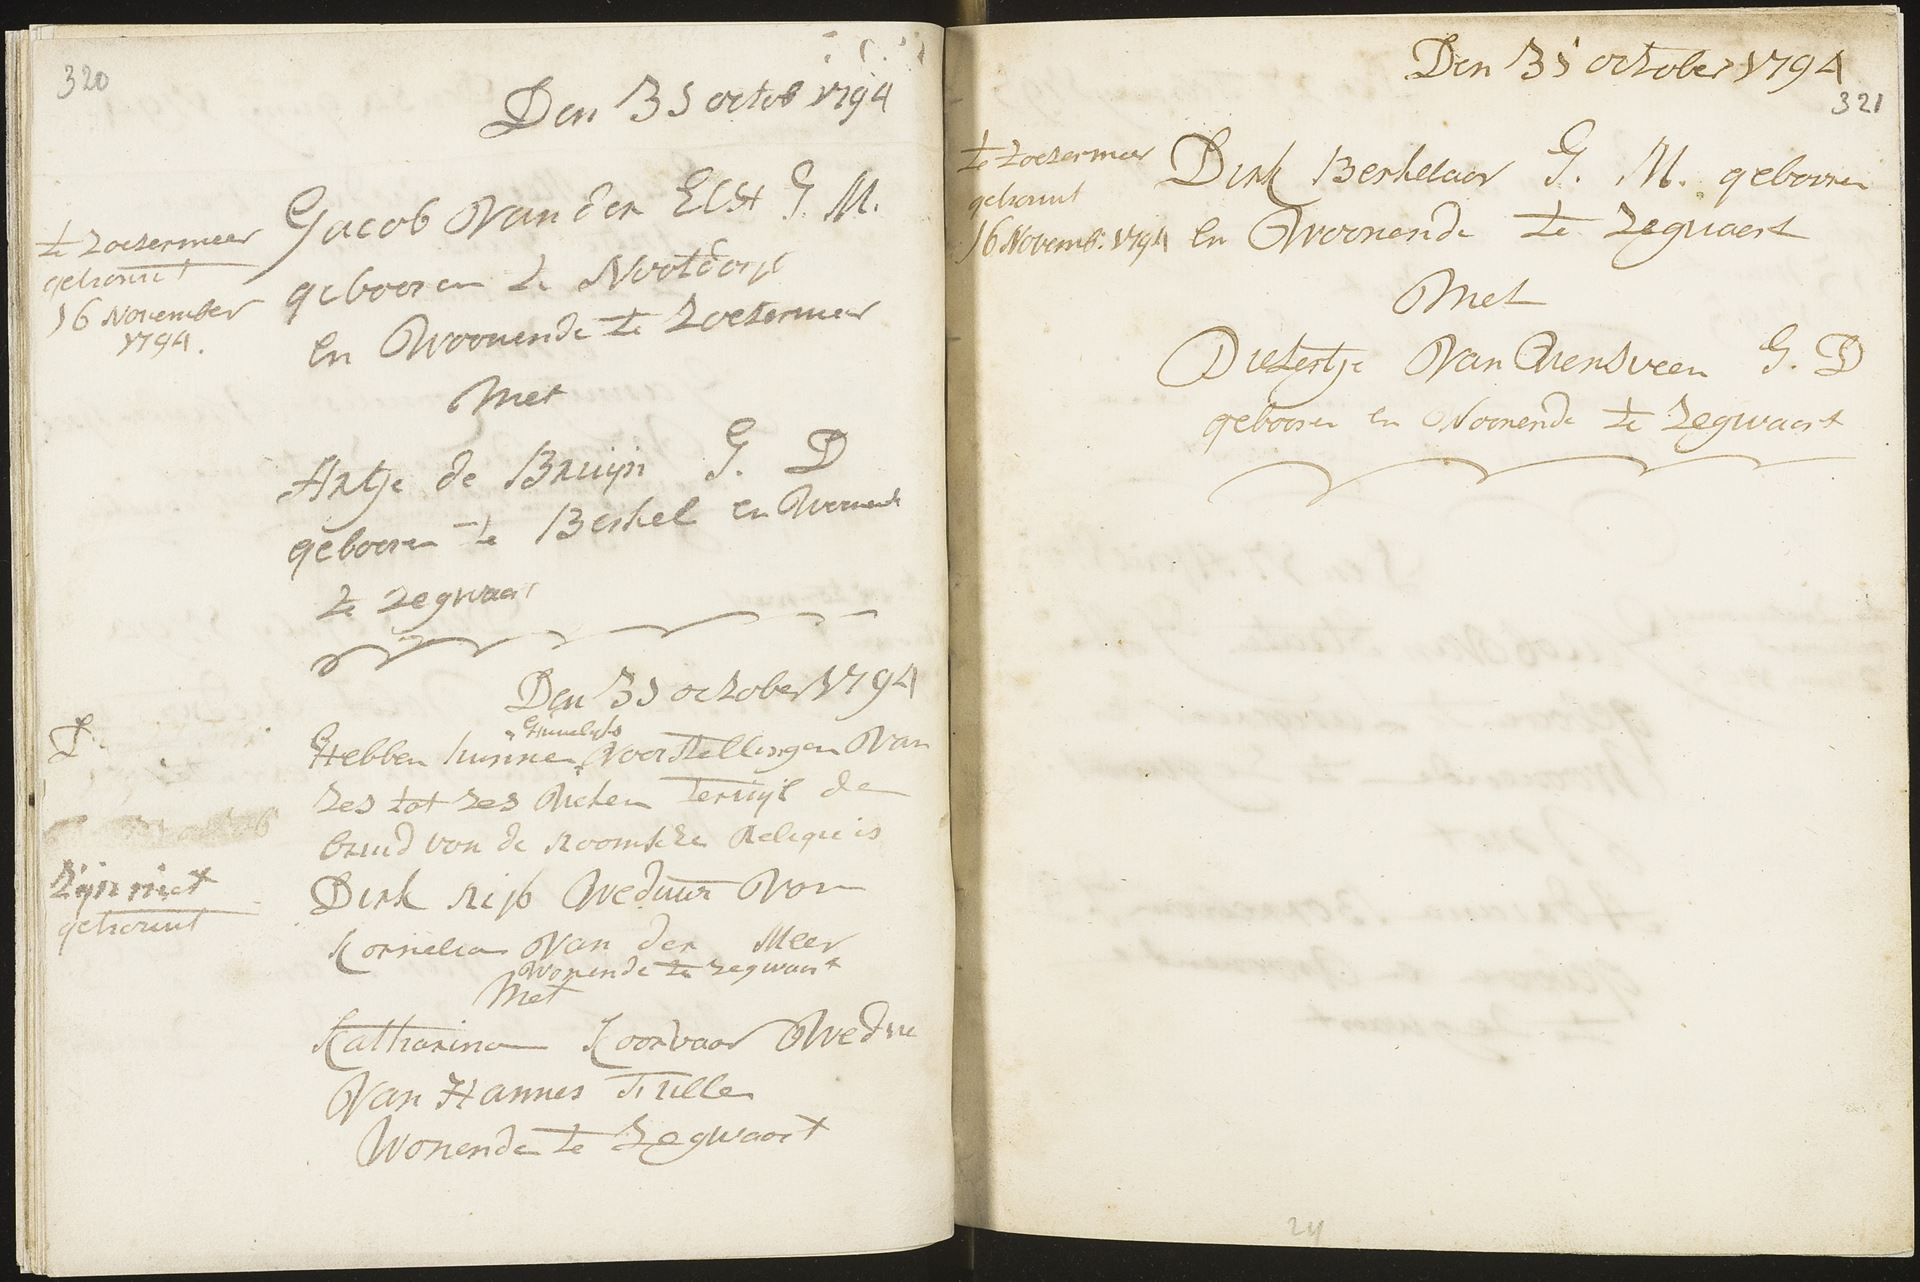 320
Den 31 octob 1794
te Zoetermeer
getrouwt
16 November
1794.
Jacob Van der Elst J. M.
gebooren te Nootdorp
en Woonende te Zoetermeer
Met
Artje de Bruijn J. D
gebooren te Berkel en Woonende
te Zegwaart
Den 31 october 1794
Huwelijks
Hebben hunne Voorstellingen Van
zes tot zes Weken terwijl de
bruid von de Roomsche Religie is
Zijn niet
getrouwt
Dirk Rijb Weduwr Van
Kornelia Van der Meer
Wonende te Zegwaart
Met
Katharina Koorvaar Wedue
Van Hannes Tulle
Wonende te Zegwaart
Den 31 october 1794
321
te Zoetermeer
getrouwt
16 Novemb. 1794
Dirk Berkelaar J. M. gebooren
en Woonende te Zegwaart
Met
Dietertje Van Rensveen J. D
gebooren en Woonende te Zegwaart
24